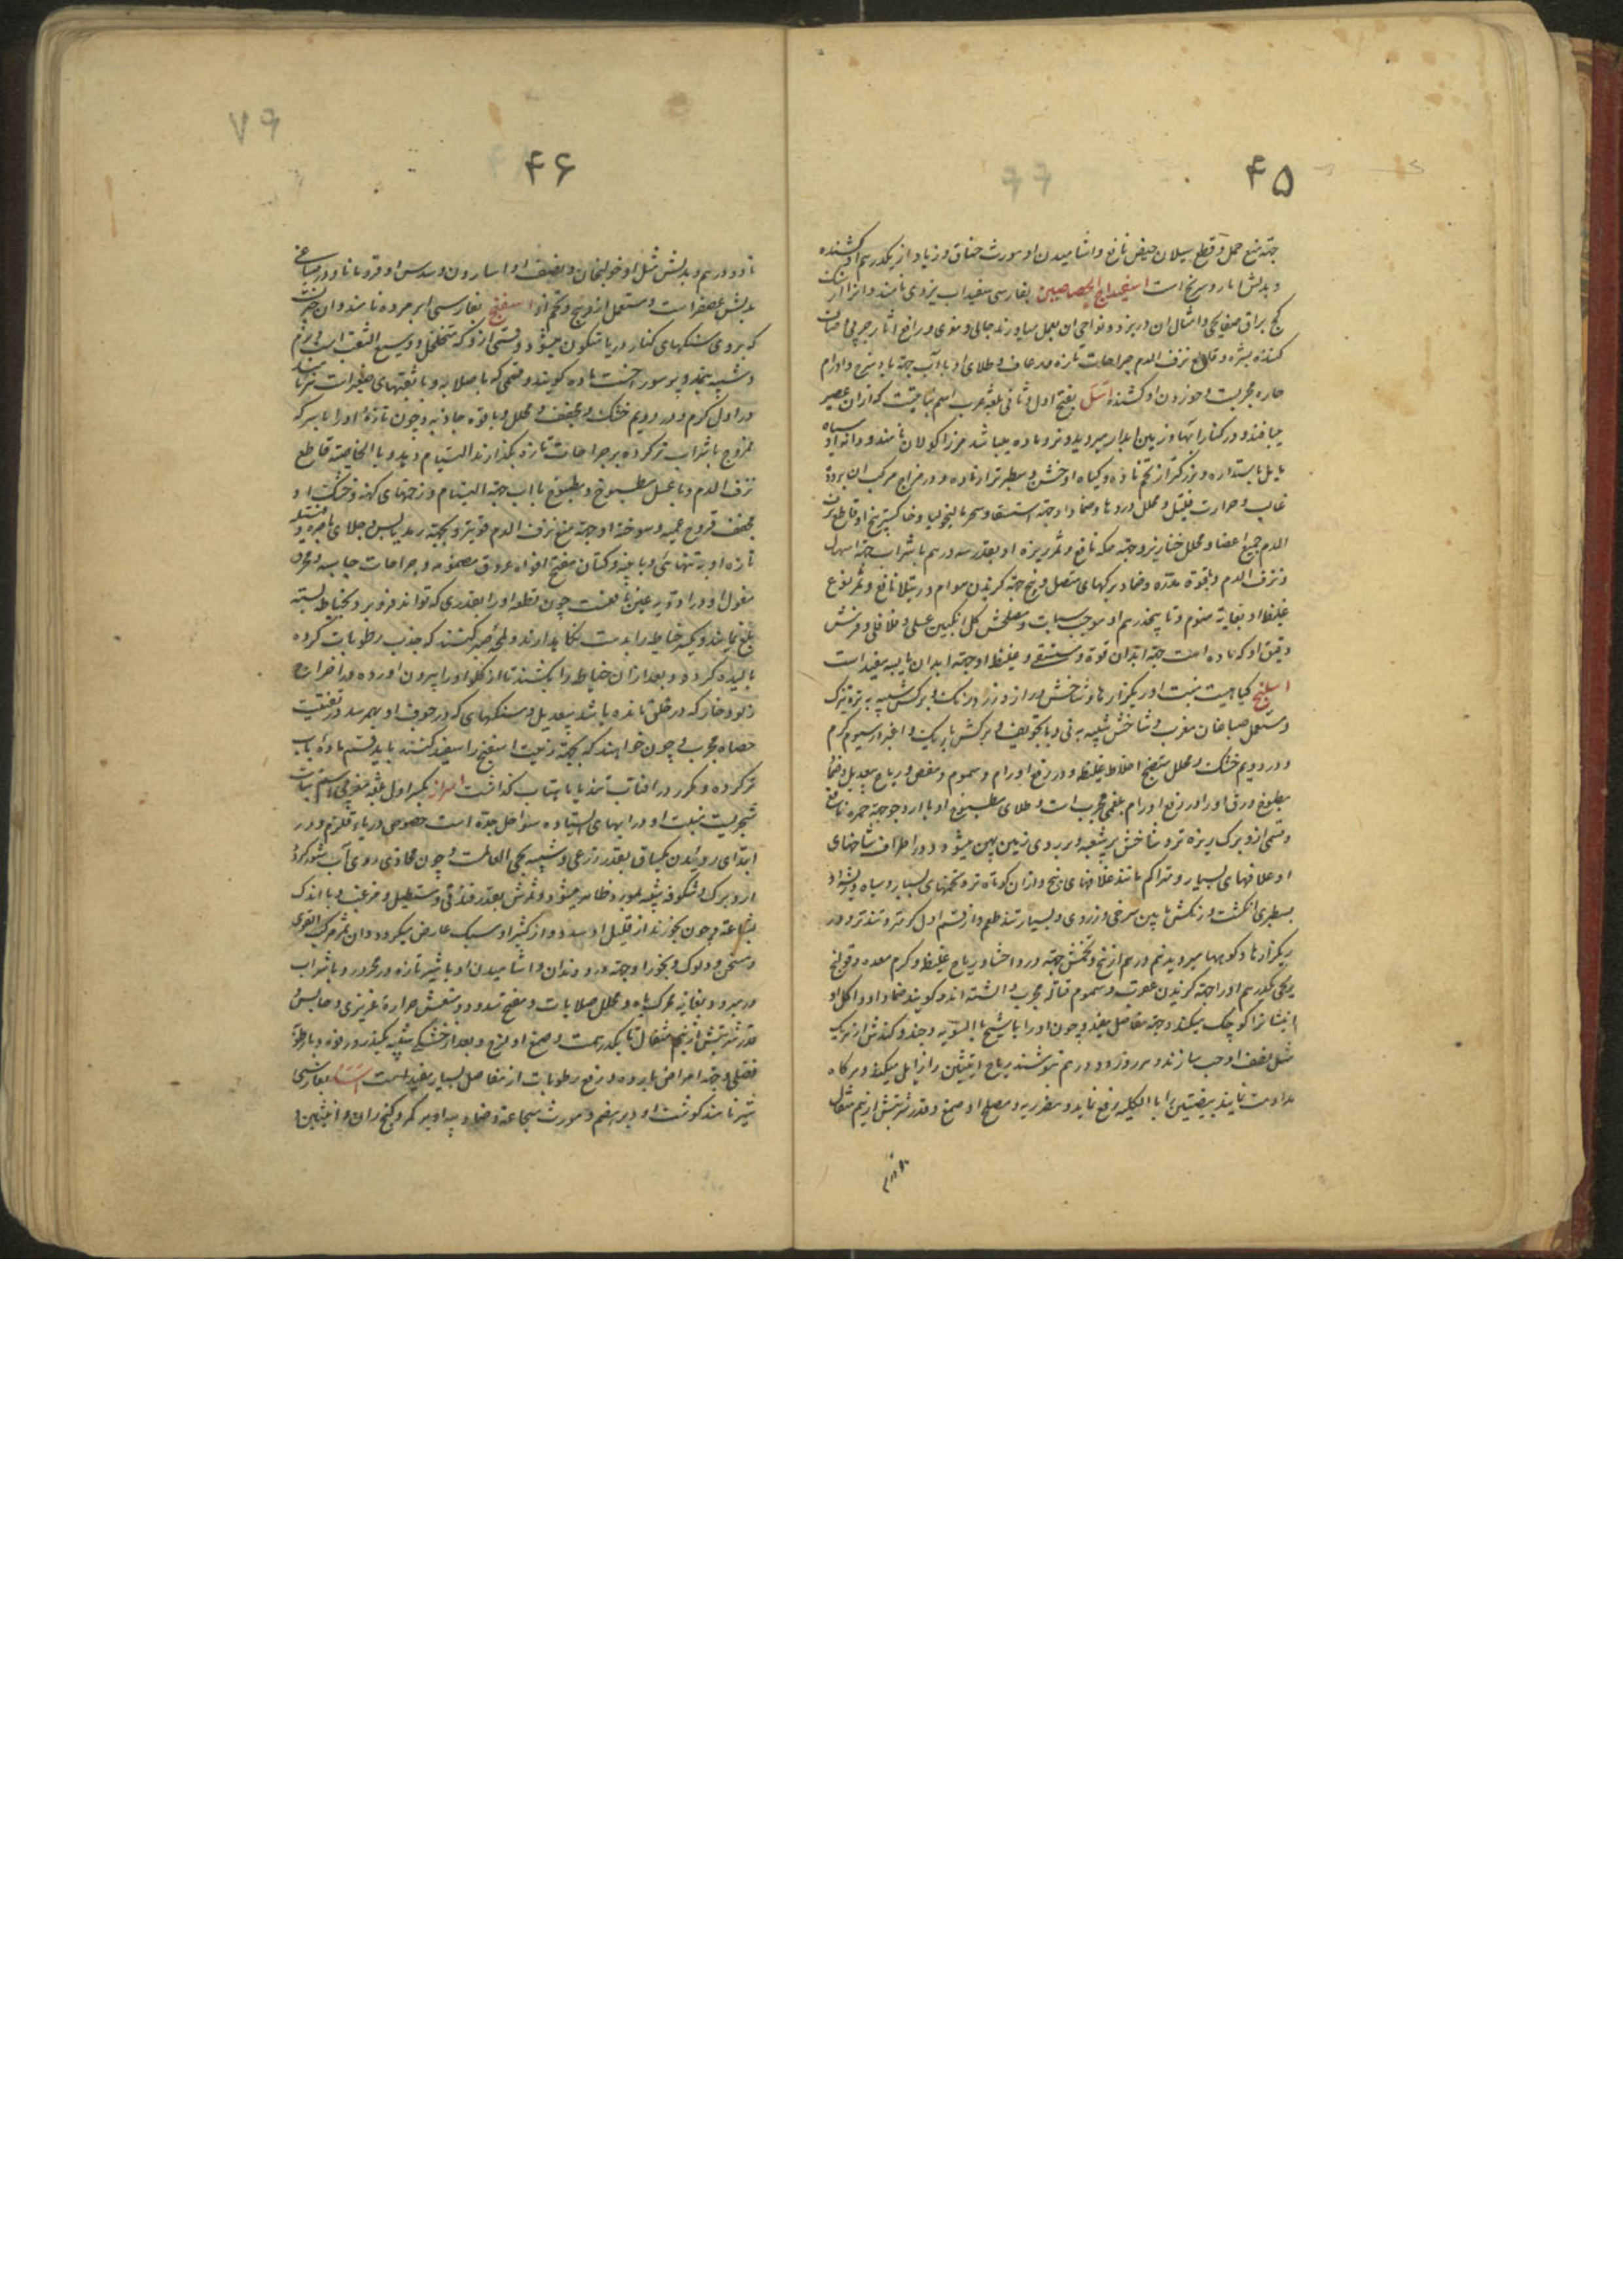 ۴۵
جهة منع حمل و قطع سیلان حیض نافع و اشامیدن او مورث خناق و زیاد از یکدرهم او کشنده
و بدلش اب است اسفیداج الجصاصین بفارسی سفیداب یزدی نامند و انرا از سنک
کج براق صفایحی و امثال ان در یزد و نواحی ان بعمل میاورند جالی و مقوی و رافع اثار و
کننده بشره و قاطع نزف الدم جراحات تازه و رعاف و طلای او با آب جهة باد سرخ و اورام
حاره مجربست و خوردن او کشنده اسل بفتح اول و ثانی بلغة عرب اسم نباتیست که از ان حصیر
میبافند و در کنار ابها و زمین ابدار میروید و نر و ماده میباشد نر را کولان نامند و دانه او سیاه
مایل باستداره و بزرکتر از تخم ماده و کیاه او خشن و سطبرتر از ماده و در مزاج مرکب ان برودة
غالب و حرارت قلیل و محلل و ضماد او جهة استسقا و سهر مالیخولیا و خاکستر بیخ او قاطع نزف
الدم جمیع اعضا و محلل خنازیر و جهة حکه نافع و ثمر بریزه او بقدر سه درهم با شراب جهة اسهال
و نزف الدم و بقوة مدره و ضماد برکهای متصل به بیخ جهة کزیدن هوام و رتیلا نافع و ثمر نوع
غلیظ او بغایة منوم و تا پنجدرهم او موجب سبات و مصلحش کل انکبین عسلی و فلافلی و فرش
دقیق او که ماده است جهة ابدان قوة و مستسقی و غلیظ او جهة ابدان یابسه مفید است
اسلیخ کیاهیست منبت او ریکزارها و شاخش دراز و زرد رنک و برکش شبیه به تره تیزک
و مستعمل صباغان مغرب و شاخش شبیه به نی و با تجویف و برکش باریک و اغبر در سیوم کرم
و در دویم خشک و محلل منضج اخلاط غلیظه و در رفع اورام و سموم و مغص و ریاح بیعدیل و ضماد
مطبوخ ورق او در رفع اورام بلغمی مجرب است و طلای مطبوخ او با ارد جو جهة حمره نافع
و قسمی از و برک ریزه تر و شاخش پرشعبه و بر روی زمین پهن میشود و در اطراف شاخهای
او غلافهای بسیار و متراکم مانند غلافهای بنج و از ان کوتاه تر و تخمهای بسیار و سیاه و ریشه او
بسطبری انکشت و رنکش مابین سرخی و زردی و بسیار تند طعم و از قسم اول کرمتر و تندتر و در
ریکزارها و کوهها میروید نیم درهم از بیخ و تخمش جهة درد احشا و ریاح غلیظه و کرم معده و قولنج
ریحی یکدرهم او را جهة کزیدن عقرب و سموم قتاله مجرب دانسته اند و کویند ضماد او و اکل او
انثیانرا کوچک میکند و جهة مفاصل مفید و چون او را با شیح بالسویه و جند و کندش از هر یک
مثل نصف او حب سازند و هر روز دو درهم بنوشند ریاح انثیین را زایل میکند و هر کاه
مداومت نمایند بیضتین را بالکلیه رفع نماید و مضر ریه و مصلح او صمغ و قدر شربتش از نیم مثقال
تا دو درم
۴۶
تا دو درهم و بدلش مثل او خولنجان و نصف او اسارون و سدس او قردمانا و در صباغی
بدلش عصفر است و مستعمل از و بیخ و تخم او اسفنج بفارسی ابر مرده نامند و ان چیزیست
که بر روی سنکهای کنار دریا متکون میشود و قسمی از و که متخلخل و وسیع الثقب است و نرم
و شبیه بنمد ماده کویند و قسمی که با صلابه و با ثقبهای صغیر است نر نامند
در اول کرم و در دویم خشک و مجفف و محلل و با قوه جاذبه و چون تازه او را با سرکه
ممزوج با شراب تر کرده بر جراحات تازه بکذارند التیام دهد و بالخاصیه قاطع
نزف الدم و با عسل مطبوخ و مطبوخ با اب جهة التیام زخمهای کهنه و خشک او
مجفف قروح عمیقه و سوخته او جهة منع نزف الدم قویتر و بجهة رمد یابس و جلای باصره و فتیله
تازه او به تنهائی و با پنبه و کتان مفتح افواه عروق مضمومه و جراحات جاسیه و محرق
مغسول او در ادویه عین نافعست چون قطعه او را بقدری که تواند فرو برد بخیاطه بسته
بلع نمایند و یکسر خیاط را بدست نکاه دارند و لمحه صبر کنند که جذب رطوبات کرده
بالیده کردد و بعد از ان خیاط را بکشند تا از کلو او را بیرون اورده در اخراج
زلو و خار که در حلق مانده باشد بیعدیل و سنکهای که در جوف او بهم رسد در تفتیت
حصاه مجرب و چون خواهند که بجهة زینت اسفنج را سفید کنند باید قسم ماده باب
تر کرده و مکرر در افتاب تند یا ماهتاب کذاشت اسرار بکسر اول بلغة مغربی اسم نبات
شجریست منبت او در ابهای ایستاده سواحل جده است خصوص دریاء قلزم و در
ابتدای روئیدن یکساق بقدر ذرعی و شبیه بحی العالم است و چون محاذی روی آب شود کرده
او و برک و شکوفه شبیه بمورد ظاهر میشود و ثمرش بقدر فندقی و مستطیل و مزغب و با اندک
بشاعة و چون بخورند از قلیل او سدد و از کثیر او سبک عارض میکردد و ان ثمر مرکب القوی
و مسخن و دلوک و بخور او جهة درد دندان و اشامیدن او با شیر تازه در محرور و با شراب
در مبرود بغایة محرک باه و محلل صلابات و مفتح سدد و منعش حرارة غریزی و حابس
قدر شربتش از نیم مثقال تا یکدرهم است و صمغ او لزج و بعد از خشکی شبیه بکندر و رقوه و با رطوبة
فضلی و جهة امراض بارده و رفع رطوبات از مفاصل بسیار مفید است اسد بفارسی
شیر نامند کوشت او دیر هضم و مورث شجاعة و ضماد پیه او بر کمر و کنج ران و انثیین و